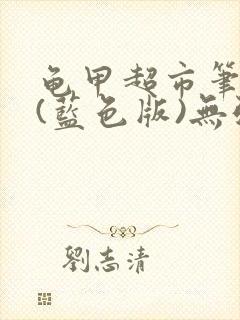 龟甲超市筆
(藍色版)無
劉志清